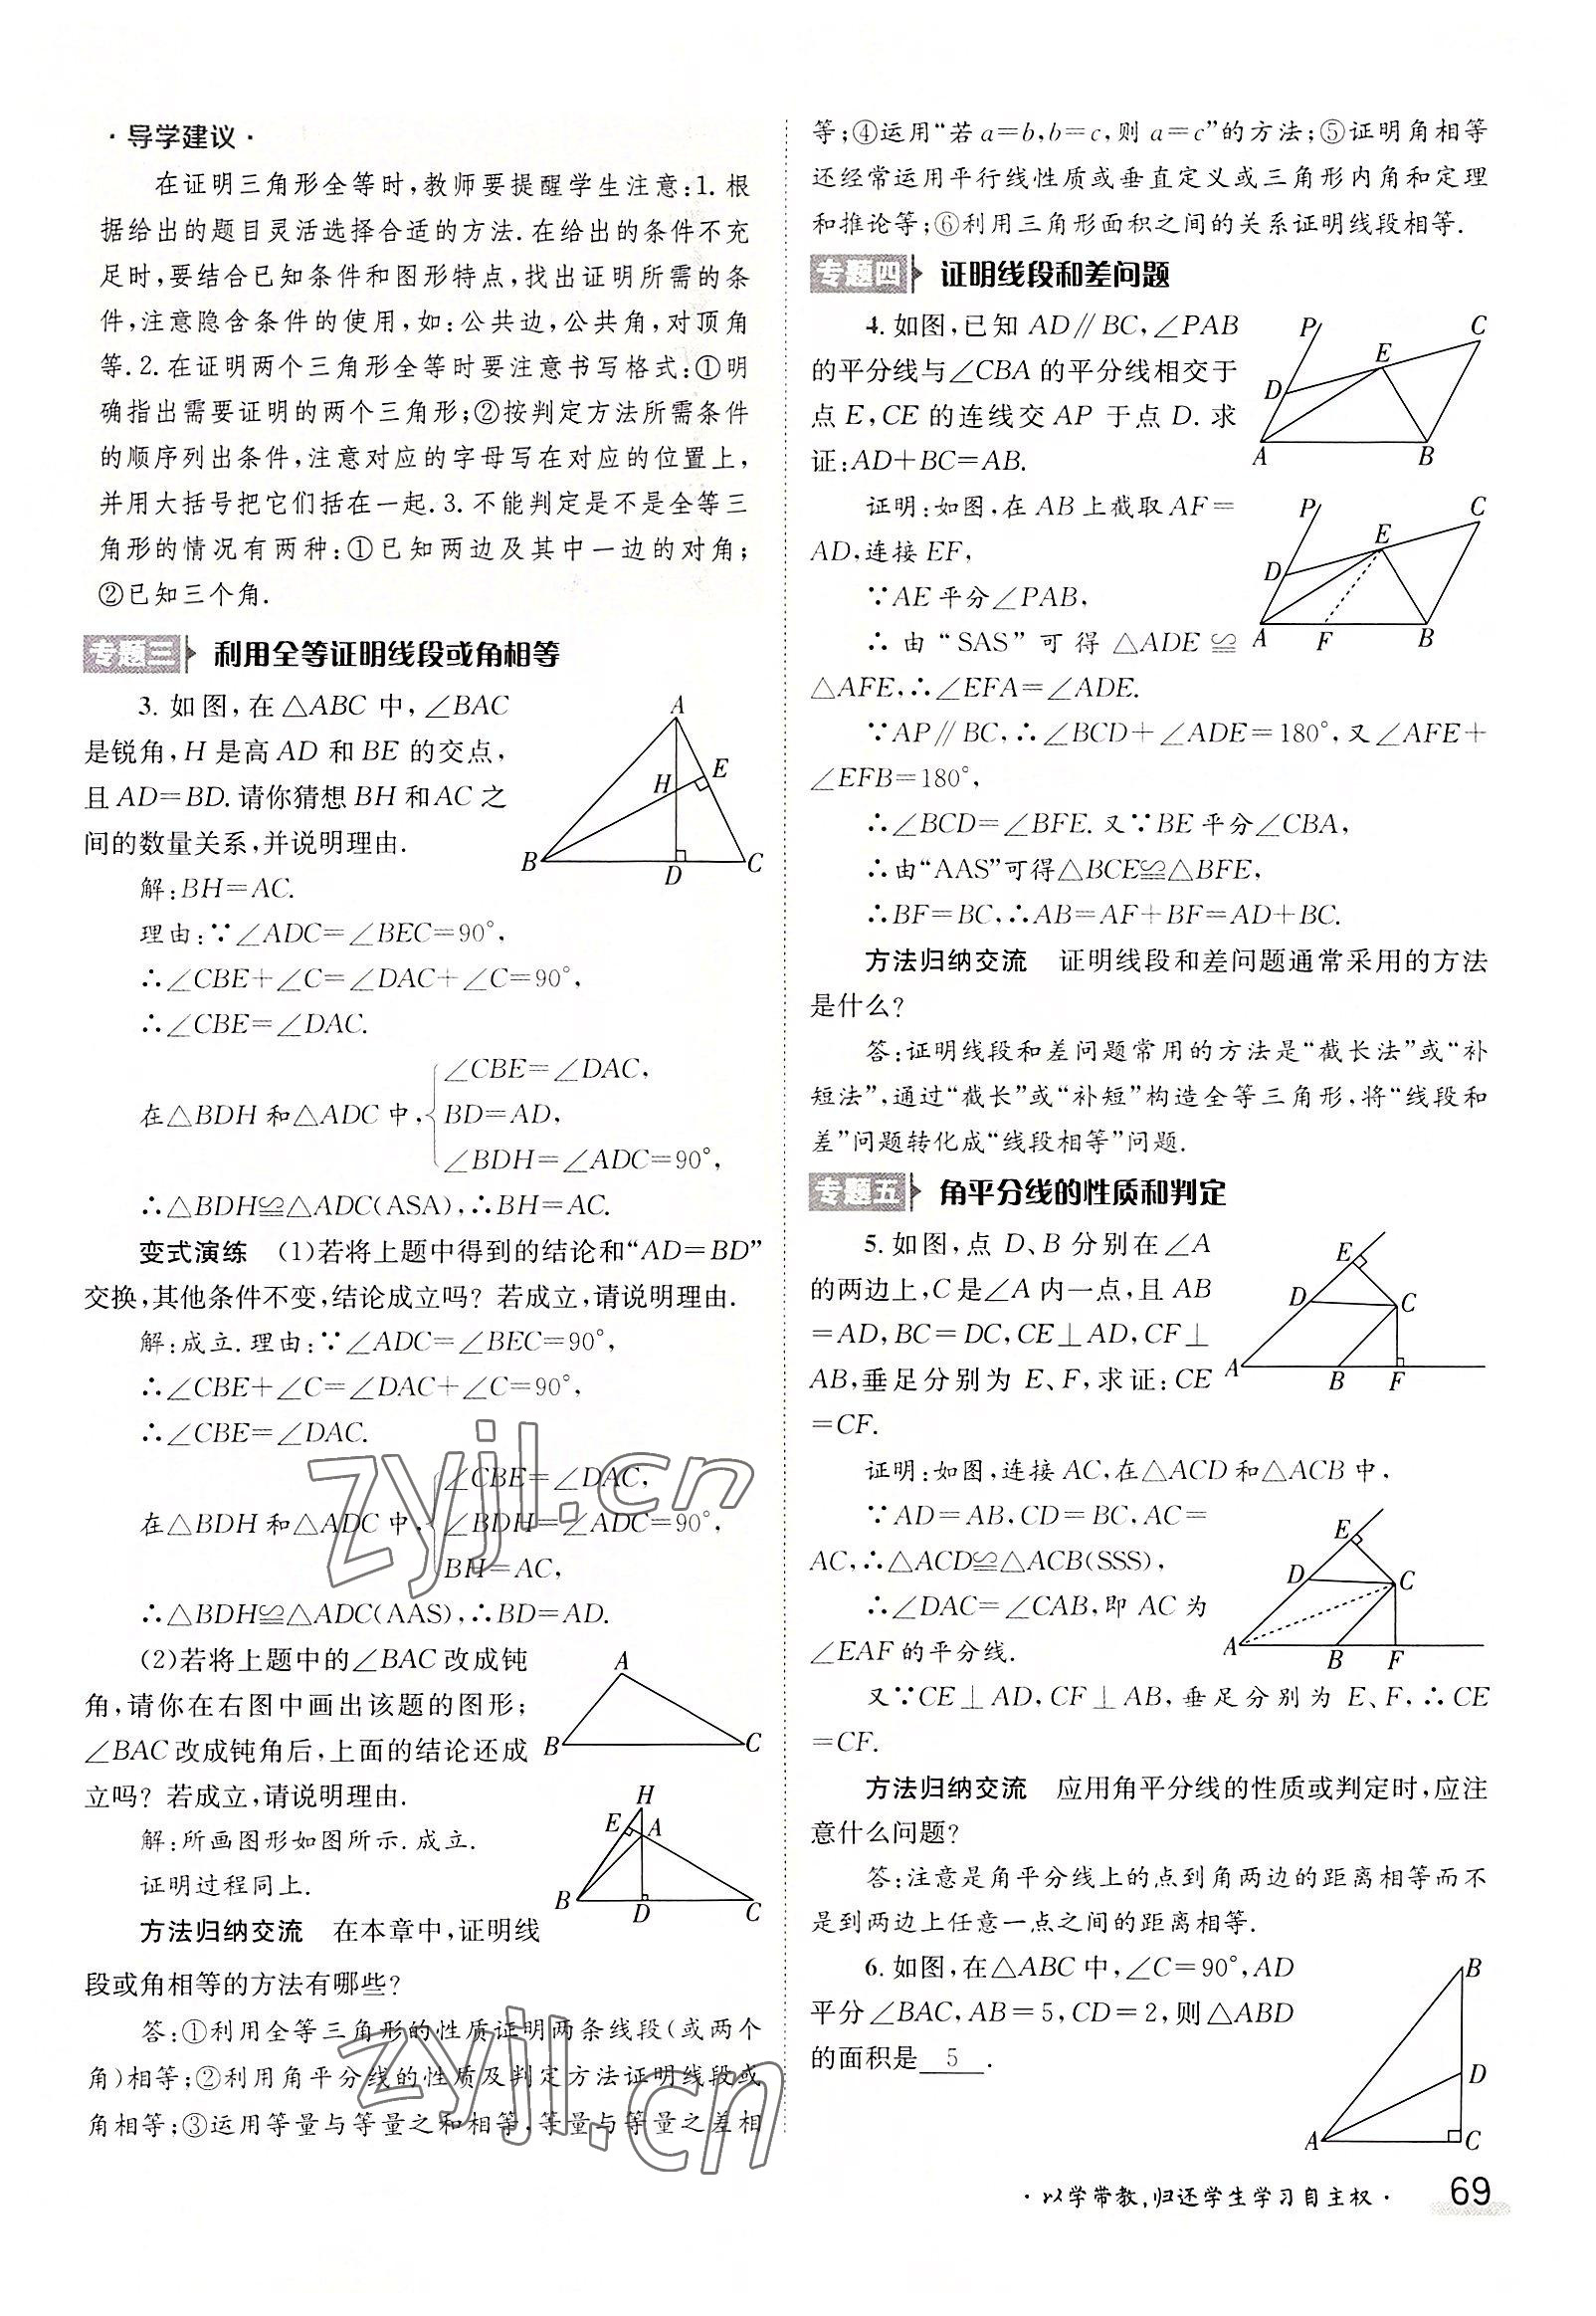 · 导学建议 ·
在证明三角形全等时,教师要提醒学生注意:1. 根
据给出的题目灵活选择合适的方法.在给出的条件不充
足时,要结合已知条件和图形特点,找出证明所需的条
件,注意隐含条件的使用,如:公共边,公共角,对顶角
等.2.在证明两个三角形全等时要注意书写格式:①明
确指出需要证明的两个三角形;②按判定方法所需条件
的顺序列出条件,注意对应的字母写在对应的位置上,
并用大括号把它们括在一起.3.不能判定是不是全等三
角形的情况有两种:①已知两边及其中一边的对角;
②已知三个角.
专题三 利用全等证明线段或角相等
3. 如图,在△ABC 中,∠BAC
是锐角,H 是高 AD 和 BE 的交点,
且 AD=BD.请你猜想 BH 和 AC 之
间的数量关系,并说明理由.
A
H
E
B
D
C
解:BH=AC.
理由:∵∠ADC=∠BEC=90°,
∴∠CBE+∠C=∠DAC+∠C=90°,
∴∠CBE=∠DAC.
∠CBE=∠DAC,
在△BDH 和△ADC 中, BD=AD,
∠BDH=∠ADC=90°,
∴△BDH≌△ADC(ASA),∴BH=AC.
变式演练 (1)若将上题中得到的结论和“AD=BD”
交换,其他条件不变,结论成立吗? 若成立,请说明理由.
解:成立.理由:∵∠ADC=∠BEC=90°,
∴∠CBE+∠C=∠DAC+∠C=90°,
∴∠CBE=∠DAC.
∠CBE=∠DAC,
在△BDH 和△ADC 中, ∠BDH=∠ADC=90°,
BH=AC,
∴△BDH≌△ADC(AAS),∴BD=AD.
(2)若将上题中的∠BAC 改成钝
角,请你在右图中画出该题的图形;
∠BAC 改成钝角后,上面的结论还成
立吗? 若成立,请说明理由.
A
B
C
解:所画图形如图所示.成立.
证明过程同上.
H
E
A
B
D
C
方法归纳交流 在本章中,证明线
段或角相等的方法有哪些?
答:①利用全等三角形的性质证明两条线段(或两个
角)相等;②利用角平分线的性质及判定方法证明线段或
角相等;③运用等量与等量之和相等,等量与等量之差相
等;④运用“若 a=b,b=c,则 a=c”的方法;⑤证明角相等
还经常运用平行线性质或垂直定义或三角形内角和定理
和推论等;⑥利用三角形面积之间的关系证明线段相等.
专题四 证明线段和差问题
4. 如图,已知 AD∥BC,∠PAB
的平分线与∠CBA 的平分线相交于
点 E,CE 的连线交 AP 于点 D. 求
证:AD+BC=AB.
P
E
C
D
A
B
证明:如图,在 AB 上截取 AF=
AD,连接 EF,
∵AE 平分∠PAB,
∴ 由 “SAS” 可 得 △ADE ≌
△AFE,∴∠EFA=∠ADE.
P
E
C
D
A
F
B
∵AP∥BC,∴∠BCD+∠ADE=180°,又∠AFE+
∠EFB=180°,
∴∠BCD=∠BFE.又∵BE 平分∠CBA,
∴由“AAS”可得△BCE≌△BFE,
∴BF=BC,∴AB=AF+BF=AD+BC.
方法归纳交流 证明线段和差问题通常采用的方法
是什么?
答:证明线段和差问题常用的方法是“截长法”或“补
短法”,通过“截长”或“补短”构造全等三角形,将“线段和
差”问题转化成“线段相等”问题.
专题五 角平分线的性质和判定
5. 如图,点 D、B 分别在∠A
的两边上,C 是∠A 内一点,且 AB
=AD,BC=DC,CE⊥AD,CF⊥
AB,垂足分别为 E、F,求证:CE
=CF.
E
D
C
A
B
F
证明:如图,连接 AC,在△ACD 和△ACB 中,
∵AD=AB,CD=BC,AC=
AC,∴△ACD≌△ACB(SSS),
∴∠DAC=∠CAB,即 AC 为
∠EAF 的平分线.
E
D
C
A
B
F
又∵CE⊥AD,CF⊥AB,垂足分别为 E、F,∴CE
=CF.
方法归纳交流 应用角平分线的性质或判定时,应注
意什么问题?
答:注意是角平分线上的点到角两边的距离相等而不
是到两边上任意一点之间的距离相等.
6. 如图,在△ABC 中,∠C=90°,AD
平分∠BAC,AB=5,CD=2,则△ABD
的面积是 5 .
B
D
A
C
· 以学带教,归还学生学习自主权 ·
69
zyjl.cn
zyjl.cn